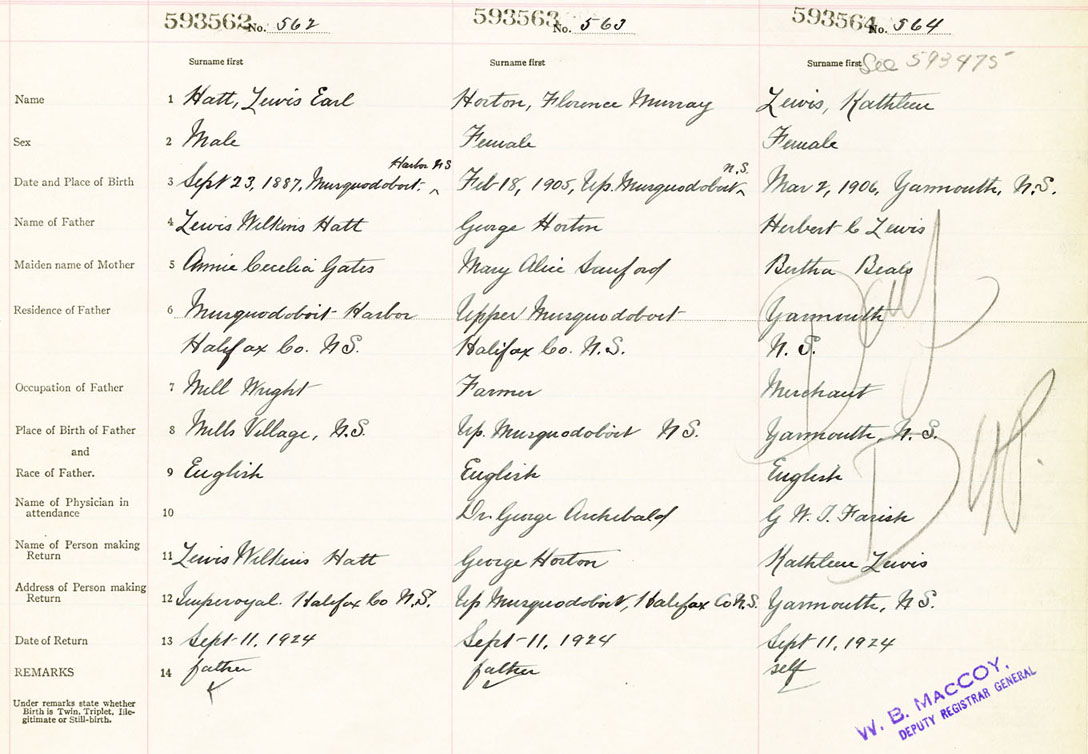 593562 No. 562 593563 No. 563 593564 No. 564
Surname first Surname first Surname first See 593475
Name 1 Hatt, Lewis Earl Horton, Florence Murray Lewis, Kathleen
Sex 2 Male Female Female
Harbor N S N.S.
Date and Place of Birth 3 Sept 23, 1887, Musquodoboit Feb 18, 1905, Up. Musquodoboit Mar 2, 1906, Yarmouth, N.S.
Name of Father 4 Lewis Wilkins Hatt George Horton Herbert C Lewis
Maiden name of Mother 5 Annie Cecelia Gates Mary Alice Sanford Bertha Beals
Residence of Father 6 Musquodoboit Harbor Upper Musquodoboit Yarmouth
Halifax Co. N S. Halifax Co. N.S. N. S.
Occupation of Father 7 Mill Wright Farmer Merchant
Place of Birth of Father 8 Mills Village, N.S. Up. Musquodoboit N S. Yarmouth, N. S.
and
Race of Father. 9 English English English
Name of Physician in attendance 10 Dr. George Archibald G W. T. Farish
Name of Person making Return 11 Lewis Wilkins Hatt George Horton Kathleen Lewis
Address of Person making Return 12 Imperoyal. Halifax Co N.S. Up Musquodoboit, Halifax Co N.S. Yarmouth, N S.
Date of Return 13 Sept 11, 1924 Sept 11, 1924 Sept 11, 1924
REMARKS 14 father father self
Under remarks state whether
Birth is Twin, Triplet, Ille-
gitimate or Still-birth.
W. B. MACCOY,
DEPUTY REGISTRAR GENERAL